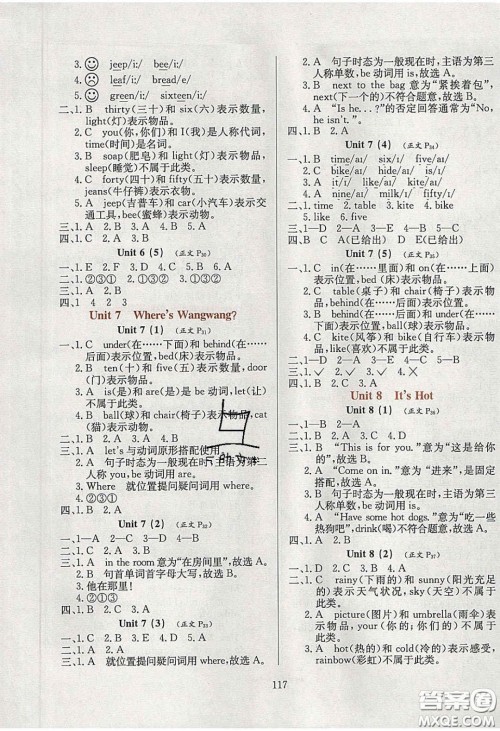 3. jeep/iː/ bee/iː/
4. leaf/iː/ bread/e/
5. green/iː/ sixteen/iː/
二、1. B thirty(三十)和 six(六)表示数量,
light(灯)表示物品。
2. C you(你,你们)和 I(我)是人称代词,
time(时间)是名词。
3. B soap(肥皂)和 light(灯)表示物品,
sleep(睡觉)不属于此类。
4. C forty(四十)和 fifty(五十)表示数量,
jeans(牛仔裤)表示衣物。
5. A jeep(吉普车)和 car(小汽车)表示交
通工具,bee(蜜蜂)表示动物。
四、1. A 2. B 3. A
Unit 6 (5) (正文 P30)
一、1. E 2. F 3. D 4. C 5. B 6. A
二、1. ②③① 2. ②③① 3. ②③①
四、1 4 2 3
Unit 7 Where's Wangwang?
Unit 7 (1) (正文 P31)
一、1. C under(在……下面)和 behind(在……
后面)表示位置,bed(床)表示物品。
2. B ten(十)和 five(五)表示数量,door
(门)表示物品。
3. A is(是)和 are(是)是 be 动词,let(让)
不属于此类。
4. B ball(球)和 chair(椅子)表示物品,cat
(猫)表示动物。
二、1. B 2. A 3. A 4. B
三、1. A let's 与动词原形搭配使用。
2. A 句子时态为一般现在时,主语为第二
人称 you,be 动词用 are,故选 A。
3. Where 就位置提问疑问词用 where。
4. ②③①
Unit 7 (2) (正文 P32)
一、1—A 2—D 3—B 4—C
二、1. C 2. A 3. A 4. B
三、1. A in the room 意为“在房间里”,故选 A。
2. B 句首单词首字母大写,故选 B。
3. 他在那里!
四、1. ②①③ 2. ②③①
Unit 7 (3) (正文 P33)
一、1. C 2. B 3. B 4. B 5. A
三、1. A 就位置提问疑问词用 where,故选 A。
2. A 句子时态为一般现在时,主语为第三
人称单数,be 动词用 is,故选 A。
3. B next to the bag 意为“紧挨着包”,
next(下一个)不符合题意,故选 B。
4. A “Is he...?”的否定回答通常为“No,
he isn't.”。
四、1. B 2. A
Unit 7 (4) (正文 P34)
三、1. time 2. table 3. kite 4. bike
5. kite 6. bike
四、B C A(已给出) D(已给出)
Unit 7 (5) (正文 P35)
一、1. C in(在……里面)和 on(在……上
面)表示位置,bed(床)表示物品。
2. C table(桌子)和 chair(椅子)表示物
品,behind(在……后面)表示位置。
3. B ball(球)和 box(盒子)表示物品,
behind(在……后面)表示位置。
4. C kite(风筝)和 bike(自行车)表示物
品,behind(在……后面)表示位置。
二、1—D 2—A 3—E 4—B 5—C
四、1. B 2. A
Unit 8 It's Hot
Unit 8 (1) (正文 P36)
二、1. B “This is for you.”意为“这是给你
的”,故选 B。
2. A “Come on in.”意为“进来”,是固定
搭配,故选 A。
3. B 句子时态为一般现在时,主语为第三
人称单数,be 动词用 is,故选 B。
4. A “Have some hot dogs.”意为“吃一些
热狗吧”,drink(喝)不符合题意,故选 A。
Unit 8 (2) (正文 P37)
一、1. C rainy(下雨的)和 sunny(阳光充足
的)表示天气状况,sky(天空)不属于
此类。
2. A picture(图片)和 umbrella(雨伞)表示
物品,your(你的;你们的)不属于
此类。
3. A hot(热的)和 cold(冷的)表示感受,
rainbow(彩虹)不属于此类。
117
答案圈
MXQE.COM